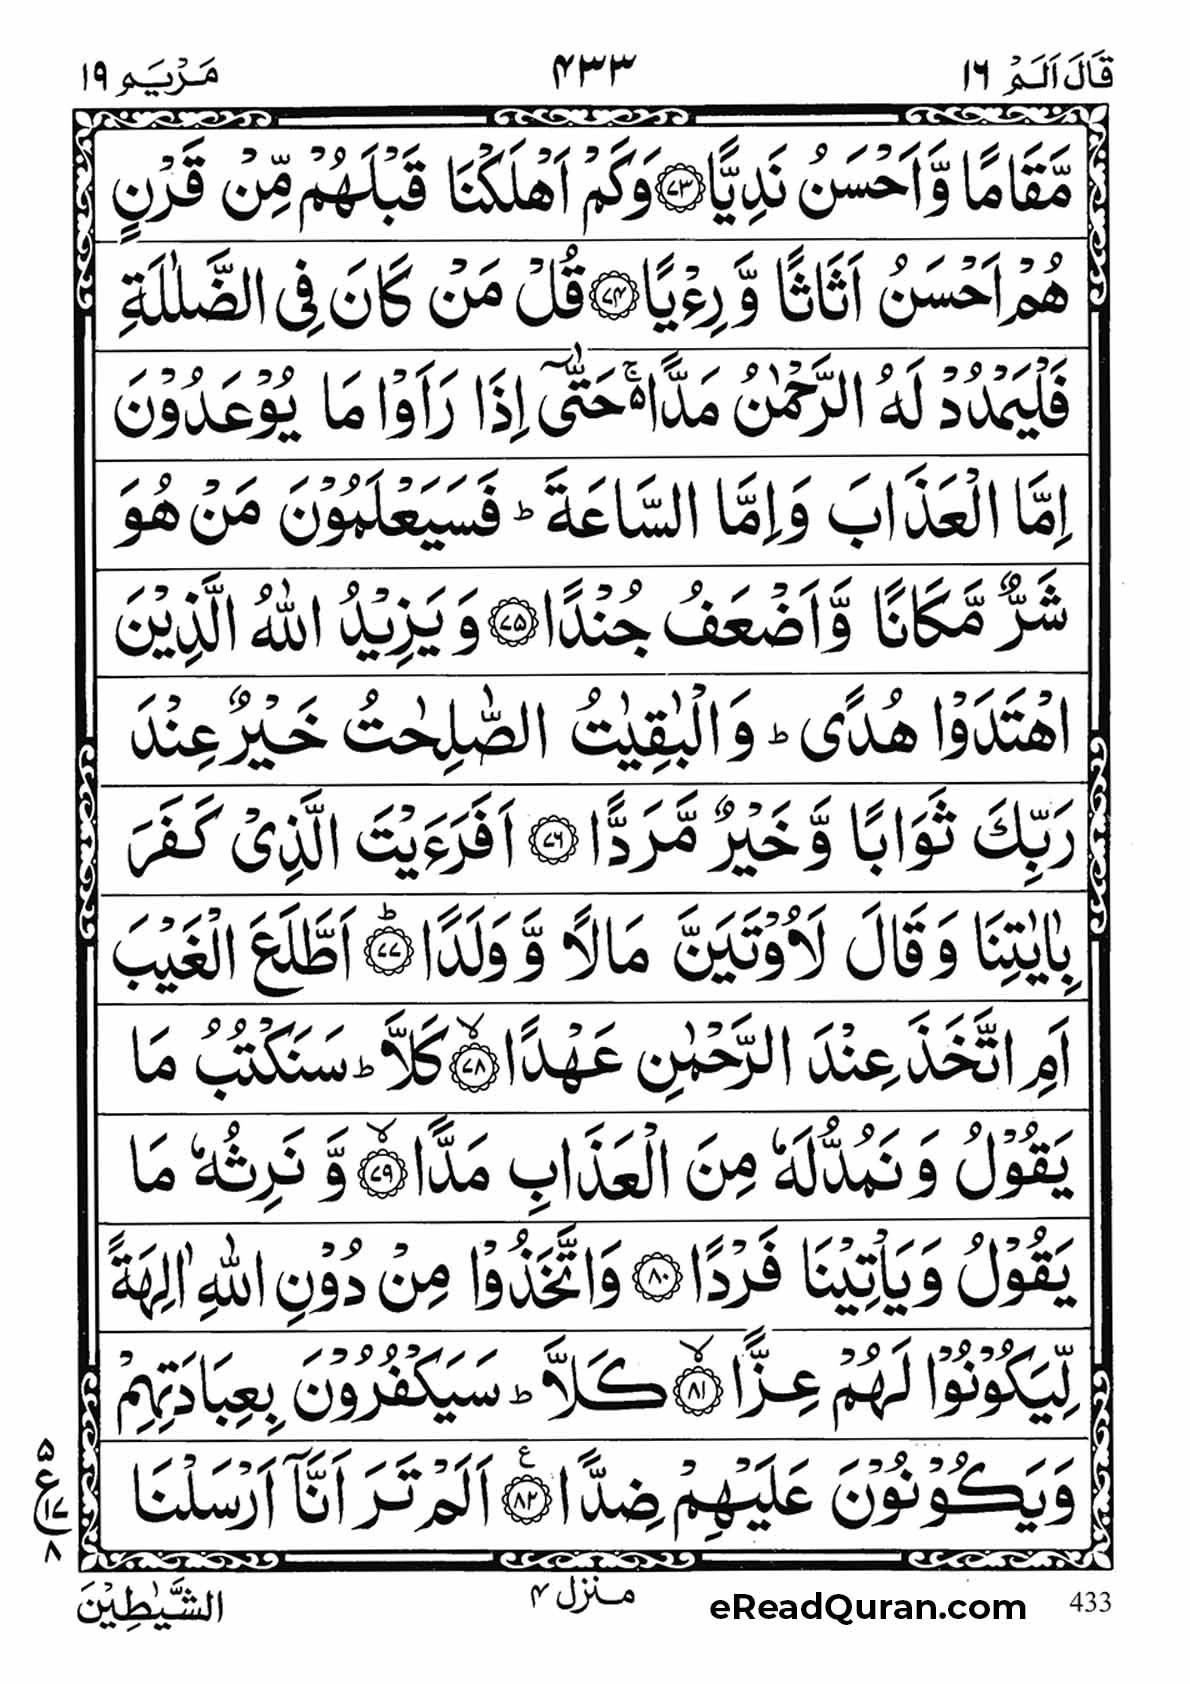 قَالَ اَلَمْ ١٦ ۴۳۳ مَرْيَم ١٩
مَّقَامًا وَّاَحْسَنُ نَدِيًّا ﴿۷۳﴾ وَكَمْ اَهْلَكْنَا قَبْلَهُمْ مِّنْ قَرْنٍ
هُمْ اَحْسَنُ اَثَاثًا وَّرِءْيًا ﴿۷۴﴾ قُلْ مَنْ كَانَ فِى الضَّلٰلَةِ
فَلْيَمْدُدْ لَهُ الرَّحْمٰنُ مَدًّا ۵ۚ حَتّٰٓى اِذَا رَاَوْا مَا يُوْعَدُوْنَ
اِمَّا الْعَذَابَ وَاِمَّا السَّاعَةَ ؕ فَسَيَعْلَمُوْنَ مَنْ هُوَ
شَرٌّ مَّكَانًا وَّاَضْعَفُ جُنْدًا ﴿۷۵﴾ وَيَزِيْدُ اللّٰهُ الَّذِيْنَ
اهْتَدَوْا هُدًى ؕ وَالْبٰقِيٰتُ الصّٰلِحٰتُ خَيْرٌ عِنْدَ
رَبِّكَ ثَوَابًا وَّخَيْرٌ مَّرَدًّا ﴿۷۶﴾ اَفَرَءَيْتَ الَّذِىْ كَفَرَ
بِاٰيٰتِنَا وَقَالَ لَاُوْتَيَنَّ مَالًا وَّوَلَدًا ؕ﴿۷۷﴾ اَطَّلَعَ الْغَيْبَ
اَمِ اتَّخَذَ عِنْدَ الرَّحْمٰنِ عَهْدًا ۙ﴿۷۸﴾ كَلَّا ؕ سَنَكْتُبُ مَا
يَقُوْلُ وَنَمُدُّ لَهٗ مِنَ الْعَذَابِ مَدًّا ۙ﴿۷۹﴾ وَّنَرِثُهٗ مَا
يَقُوْلُ وَيَاْتِيْنَا فَرْدًا ﴿۸۰﴾ وَاتَّخَذُوْا مِنْ دُوْنِ اللّٰهِ اٰلِهَةً
لِّيَكُوْنُوْا لَهُمْ عِزًّا ۙ﴿۸۱﴾ كَلَّا ؕ سَيَكْفُرُوْنَ بِعِبَادَتِهِمْ
وَيَكُوْنُوْنَ عَلَيْهِمْ ضِدًّا ﴿۸۲﴾ ع اَلَمْ تَرَ اَنَّاۤ اَرْسَلْنَا
۵ ع ۱۷ ۸
433 eReadQuran.com منزل ۴ الشَّيٰطِيْنَ